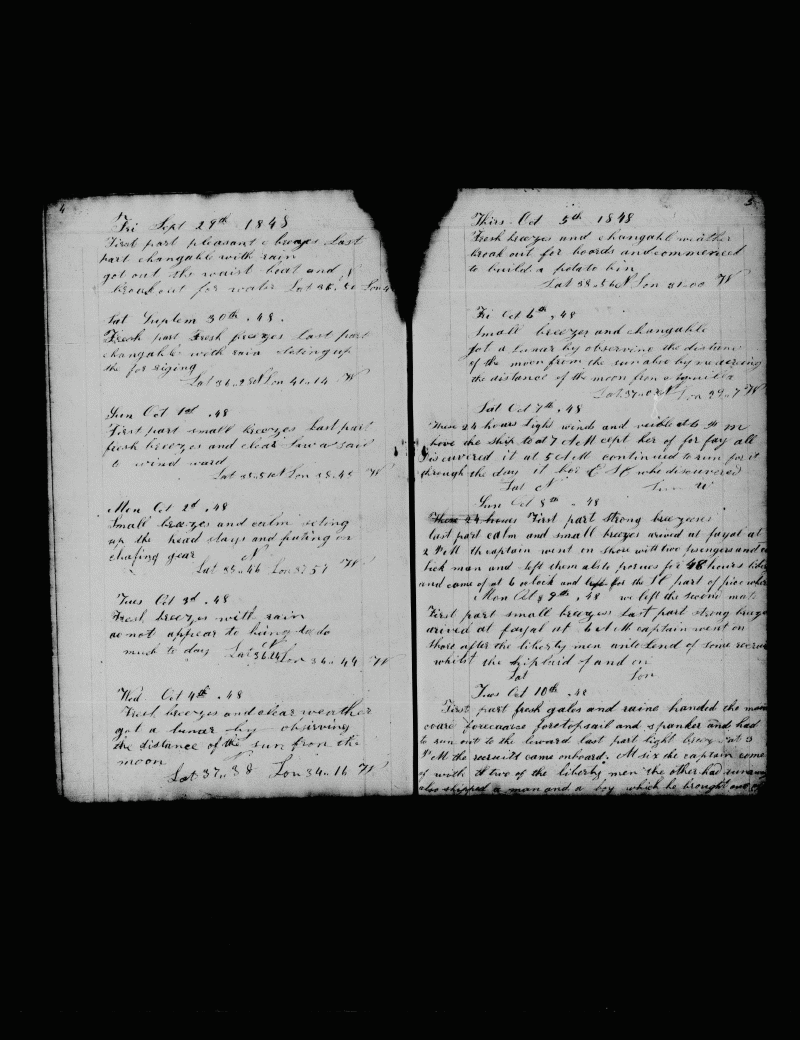 4
Fri Sept 29th 1848
First part pleasant breezes Last
part changable with rain
got out the waist boat and
broak out for water Lat 36.
Sat Septem 30th . 48 .
Fresh part Fresh breezes Last part
changable with rain seting up
the for riging
Lat 36.28 N Lon 41.14 W
Sun Oct 1st . 48
First part small breezes Last part
fresh breezes and clear Saw a sail
to wind ward
Lat N Lon 38.45 W
Mon Oct 2d . 48
Small breezes and calm seting
up the head stays and puting on
chafing gear N
Lat 35.46 Lon 37 57 W
Tues Oct 3d . 48
Fresh breezes with rain
do not appear to be to do
much to day Lat 36 24 N Lon 36.44 W
Wed Oct 4th . 48
Fresh breezes and clear weather
got a lunar by observing
the distance of the sun from the
moon
Lat 37.38 Lon 34.16 W
5
Thirs Oct 5th 1848
Fresh breezes and changable weather
broak out for boards and commenced
to build a potato bin
Lat 38.36 N Lon 31.00 W
Fri Oct 6th . 48
Small breezes and changable
Got a Lunar by observing the distanc
of the moon from the sun also by
the distance of the moon from
Lat 37 N Lon 29.7 W
Sat Oct 7th . 48
These 24 hours light winds and at 6 P M
hove the ship to at 7 A M kept her of for fay all
Discuvered it at 5 A M continued to run for it
through the day it bor E who discuvered
Lat N Lon W
Sun Oct 8th . 48
These 24 hours First part strong breezes
last part calm and small breezes arived at fayal at
2 P M the captain went on shore with two
sick man and left them also for 48 hours
and came of at 6 oclock and left for the part of
Mon Oct 9th . 48 we left the second mate
First part small breezes Last part strong
arived at fayal at 6 A M captain went on
shore after the liberty men and to send of some
whilst the ship laid of and on
Lat Lon
Tues Oct 10th . 48
First part fresh gales and raine handed the
foretopsail and spanker and had
to run out to the leward last part light breezes at 3
P M the recruits came onboard. At six the captain came
of with two of the liberty men the other had
also shipped a man and a boy which he brought